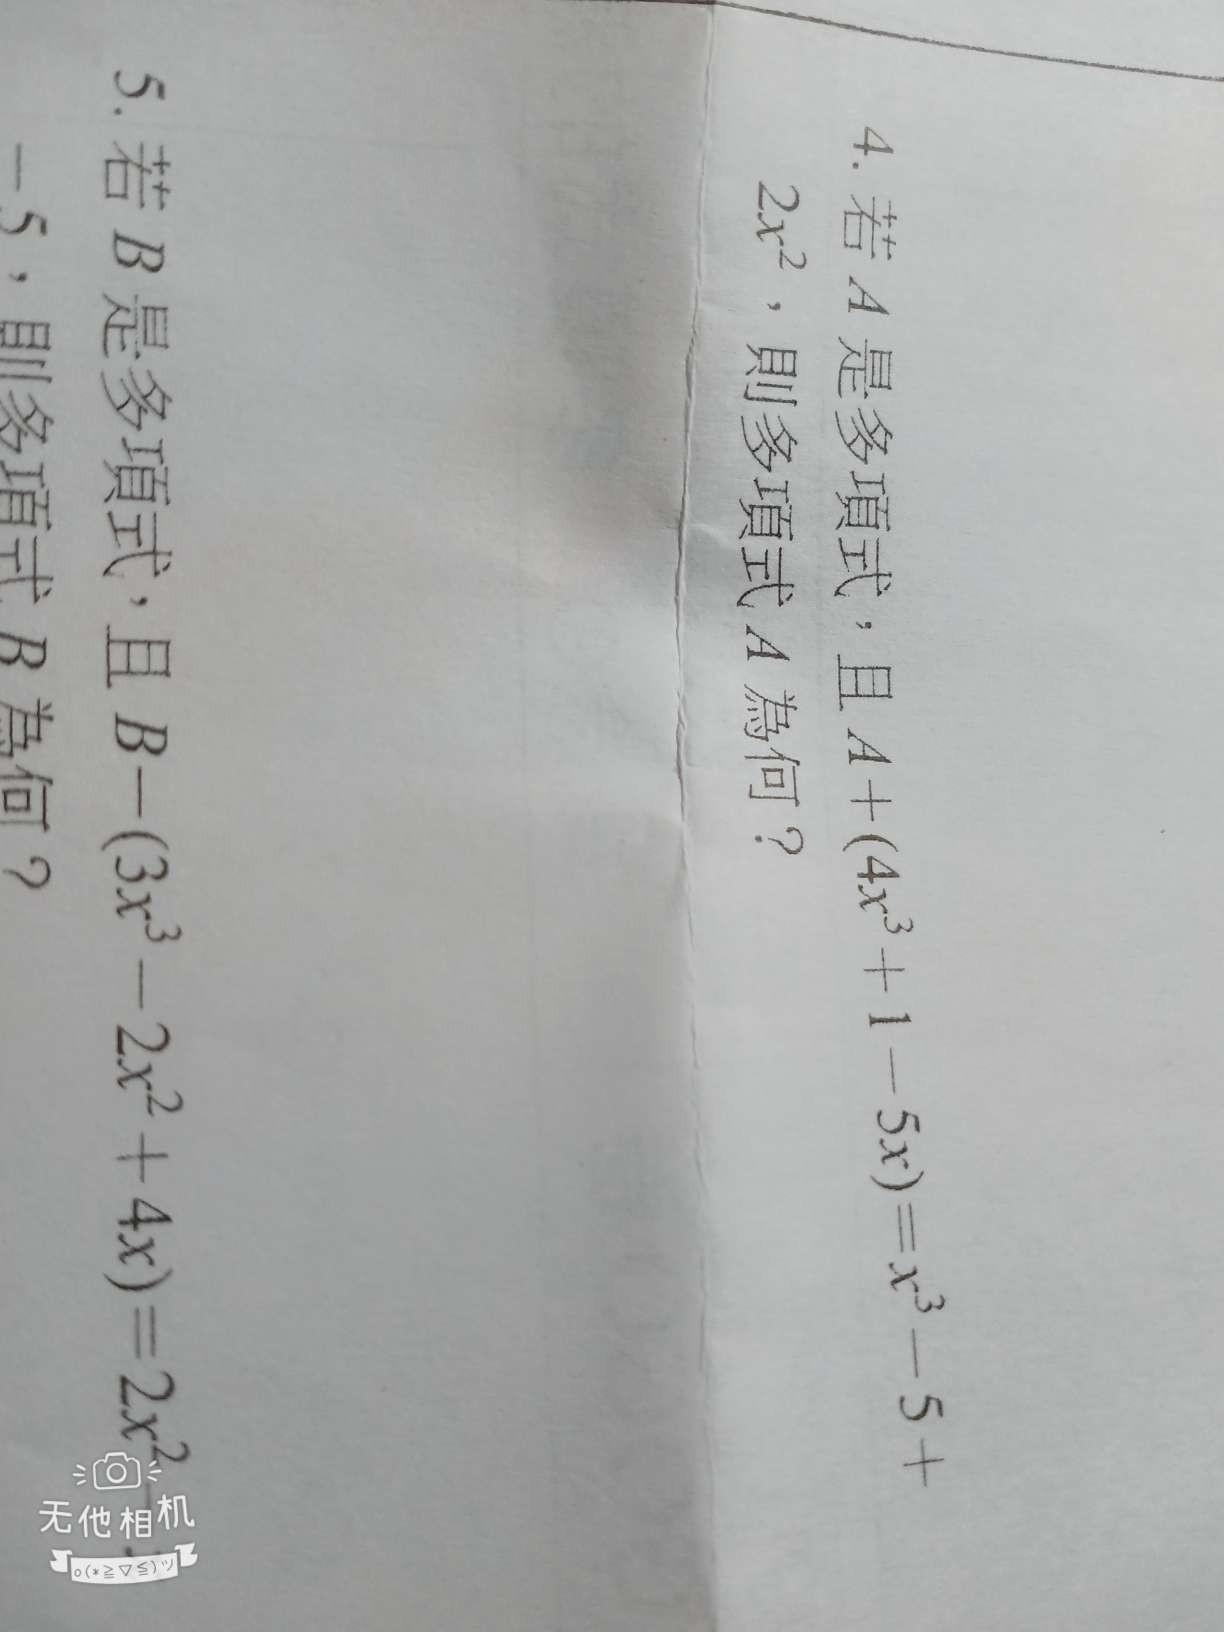 4. 若 A 是多項式，且 A+(4x³+1-5x)=x³-5+
2x²，則多項式 A 為何？
5. 若 B 是多項式，且 B-(3x³-2x²+4x)=2x²-
-5，則多項式 B 為何？
无他相机